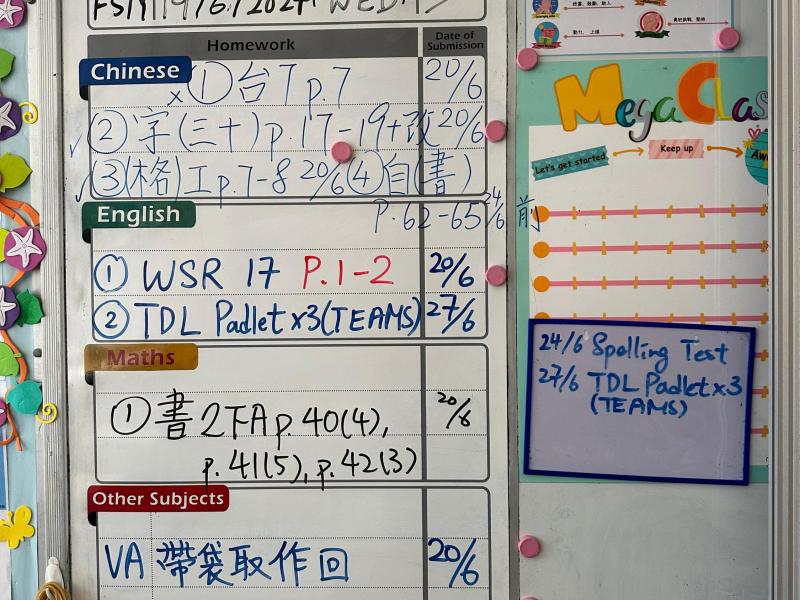 19/6/2024 WED
Homework
Date of Submission
Chinese
x ① 台 T p.7 20/6
✓ ② 字(三十) p.17-19+改 20/6
✓ ③(格)工 p.7-8 20/6 ④ 自(書)
P.62-65 24/6 前
English
① WSR 17 P.1-2 20/6
② TDL Padlet x3 (TEAMS) 27/6
Maths
① 書 2下A p.40(4), 20/6
p.41(5), p.42(3)
Other Subjects
VA 帶袋取作回 20/6
Mega Clas
Let's get started
Keep up
24/6 Spelling Test
27/6 TDL Padlet x3
(TEAMS)